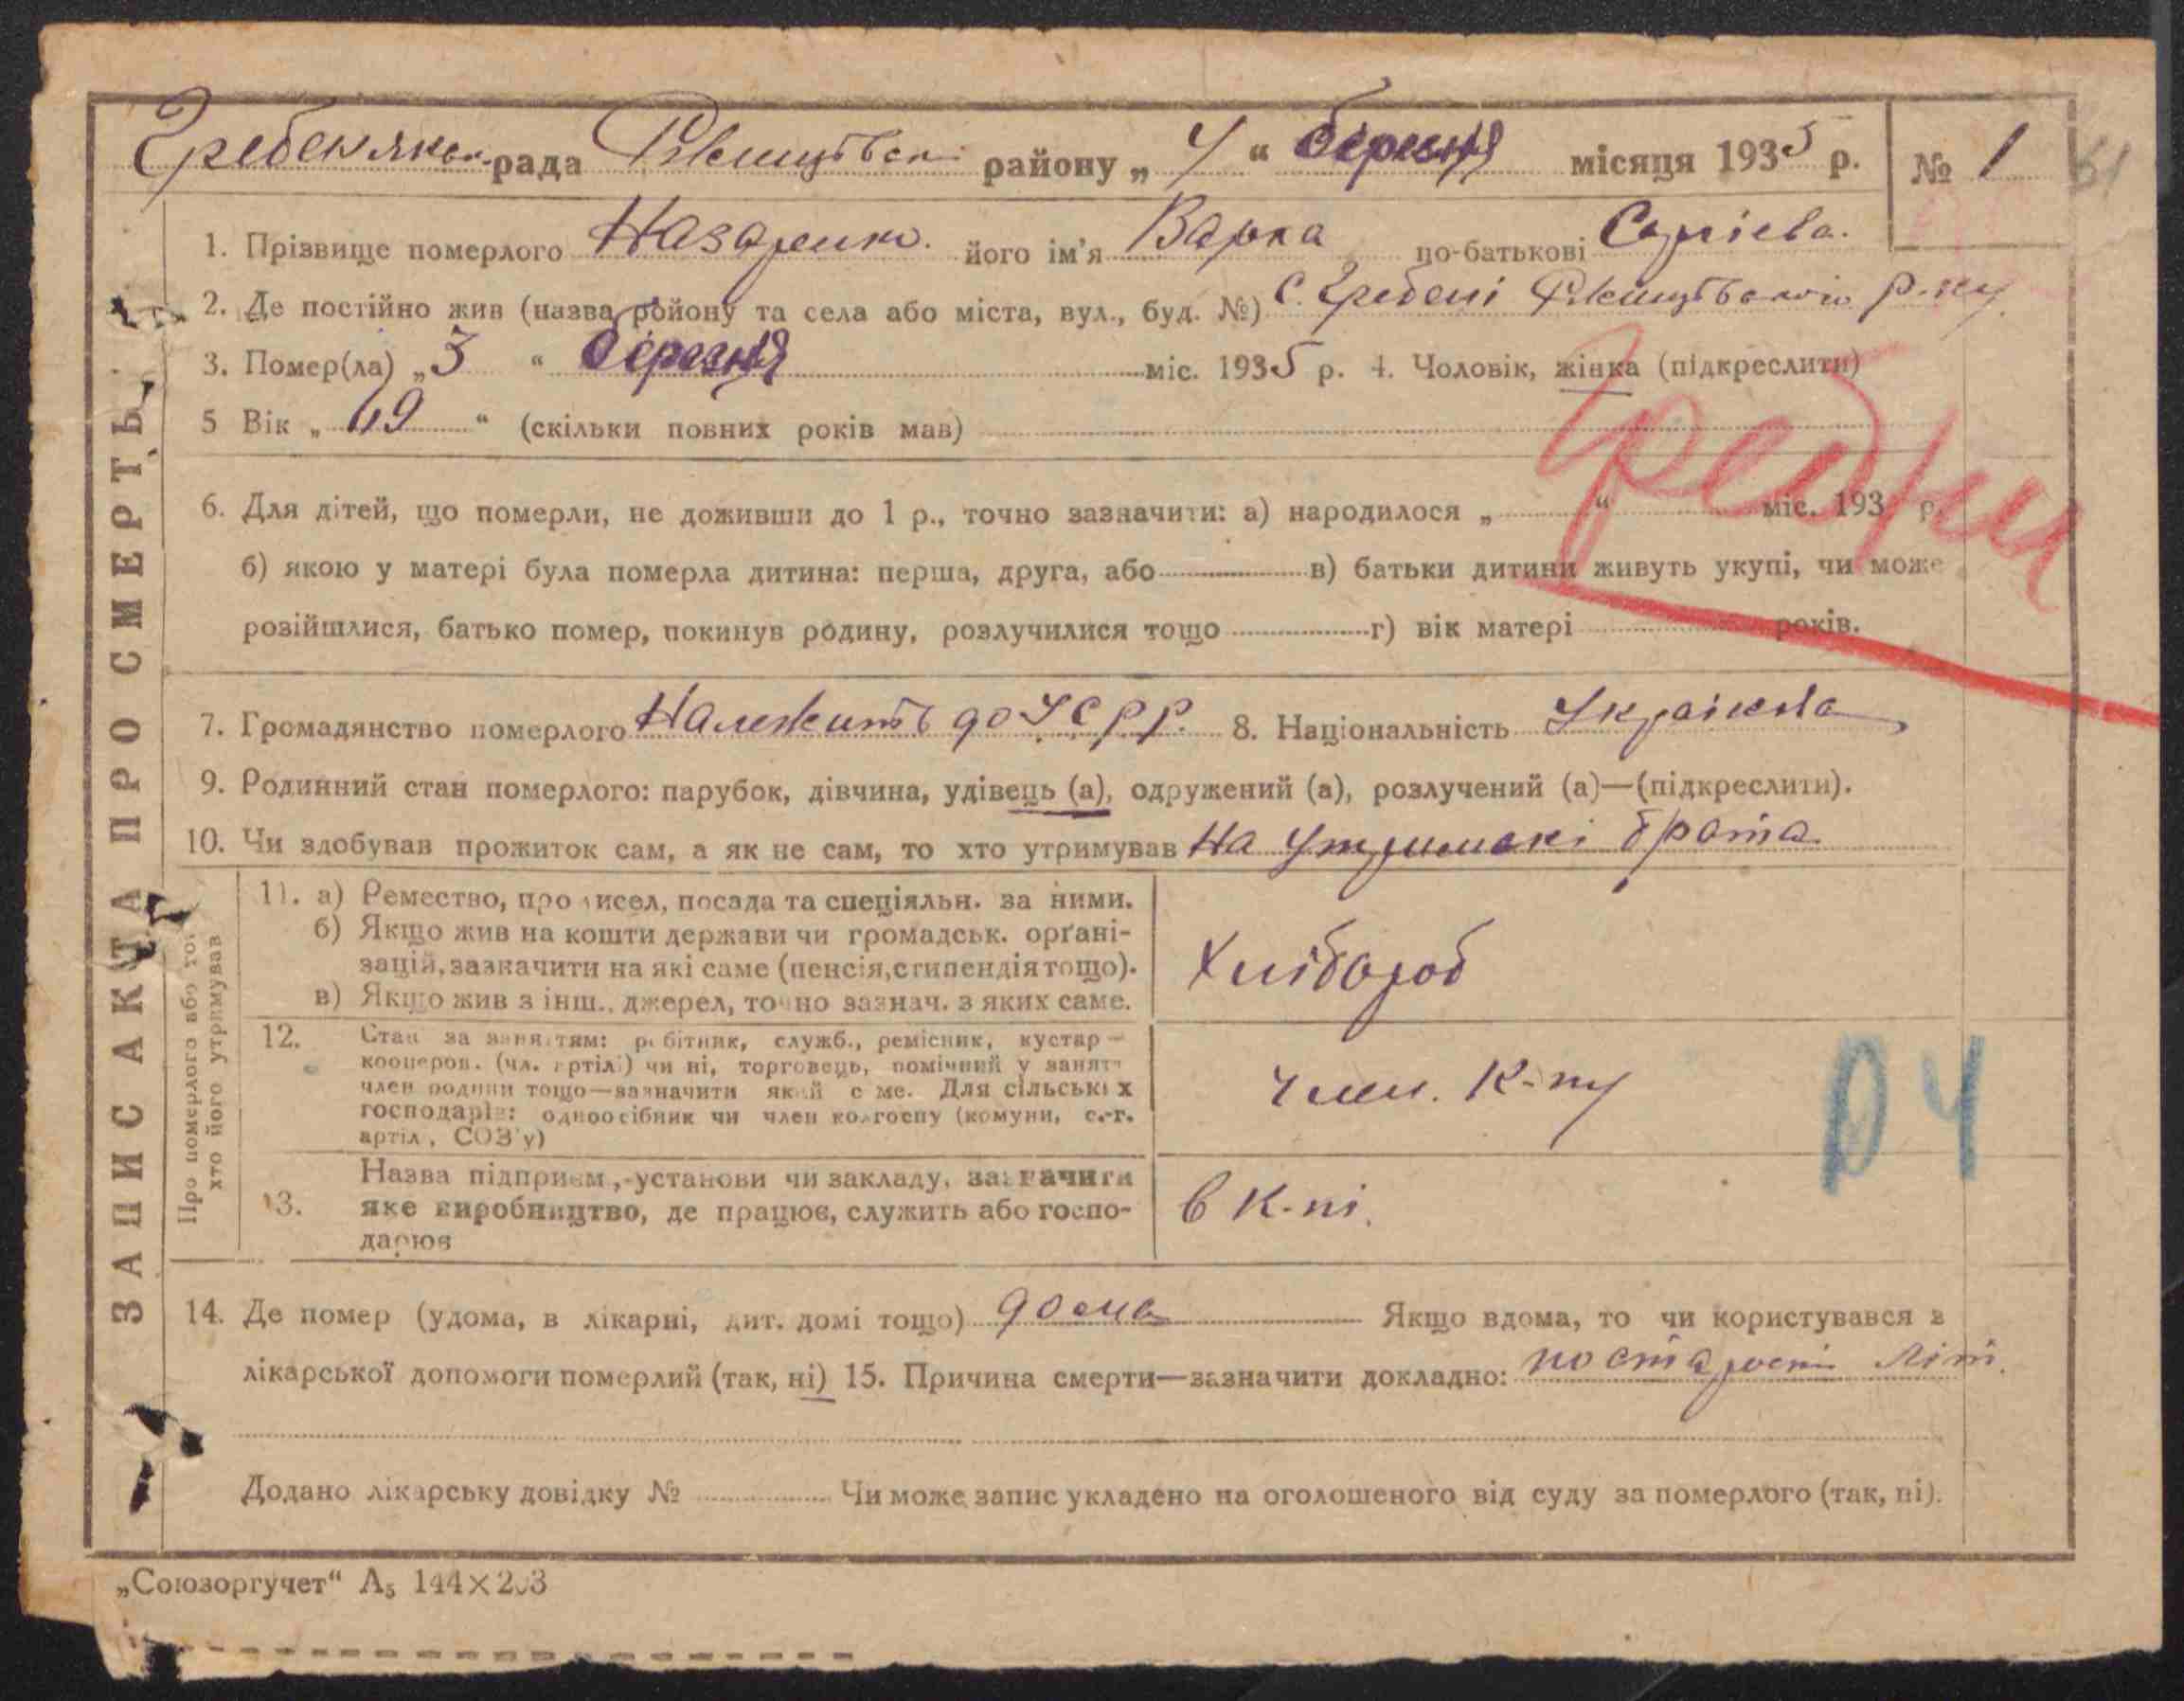 Гребенської рада Ржищівськ району „ 4 “ березня місяця 1935 р. № 1 51
1. Прізвище померлого Назаренко. його ім'я Варка по-батькові Сергієва.
2. Де постійно жив (назва району та села або міста, вул., буд. №) с. Гребені Ржищівського р-ну
3. Помер(ла) „ 3 “ березня міс. 1935 р. 4. Чоловік, жінка (підкреслити)
5 Вік „ “ (скільки повних років мав)
Гребни
6. Для дітей, що померли, не доживши до 1 р., точно зазначити: а) народилося „ “ міс. 193 р.
б) якою у матері була померла дитина: перша, друга, або в) батьки дитини живуть укупі, чи може
розійшлися, батько помер, покинув родину, розлучилися тощо г) вік матері років.
7. Громадянство померлого Належить до УСРР. 8. Національність Українка
9. Родинний стан померлого: парубок, дівчина, удівець (а), одружений (а), розлучений (а)—(підкреслити).
10. Чи здобував прожиток сам, а як не сам, то хто утримував На утриманні брата.
11. а) Ремество, промисел, посада та спеціяльн. за ними.
б) Якщо жив на кошти держави чи громадськ. орґані-
зацій, зазначити на які саме (пенсія, стипендія тощо).
в) Якщо жив з інш., джерел, точно зазнач. з яких саме.
Хлібороб
12. Стан за заняттям: робітник, служб., ремісник, кустар—
кооперов. (чл. артілі) чи ні, торговець, помічний у занятт
член родини тощо—зазначити який саме. Для сільських
господарів: одноосібник чи член колгоспу (комуни, с.-г.
артіл, СОЗ'у)
Член. К-пу
04
13. Назва підприєм, установи чи закладу, зазначити
яке виробництво, де працює, служить або госпо-
дарює
в К-пі.
14. Де помер (удома, в лікарні, дит. домі тощо) дома Якщо вдома, то чи користувався з
лікарської допомоги померлий (так, ні) 15. Причина смерти—зазначити докладно: по старості літ.
Додано лікарську довідку № Чи може запис укладено на оголошеного від суду за померлого (так, ні).
„Союзоргучет“ А₅ 144×203
ЗАПИС АКТА ПРО СМЕРТЬ
Про померлого або того
хто його утримував